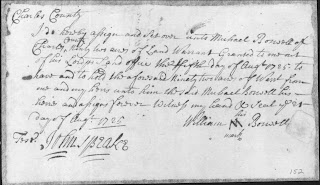 Charles County
I do hereby assign and set over unto Michael Boswell of
Charles County Ninety two acres of Land Warrant Granted to me out
of his Lordships Land office the fifth day of Augst 1725 to
have and to hold the aforesaid Ninety two acres of Wart from
me and my heirs unto him the said Michael Boswell his
heirs and assigns forever Witness my hand & Seal
day of Augst 1725
his
William M Boswell
mark
Test
John Speake
152